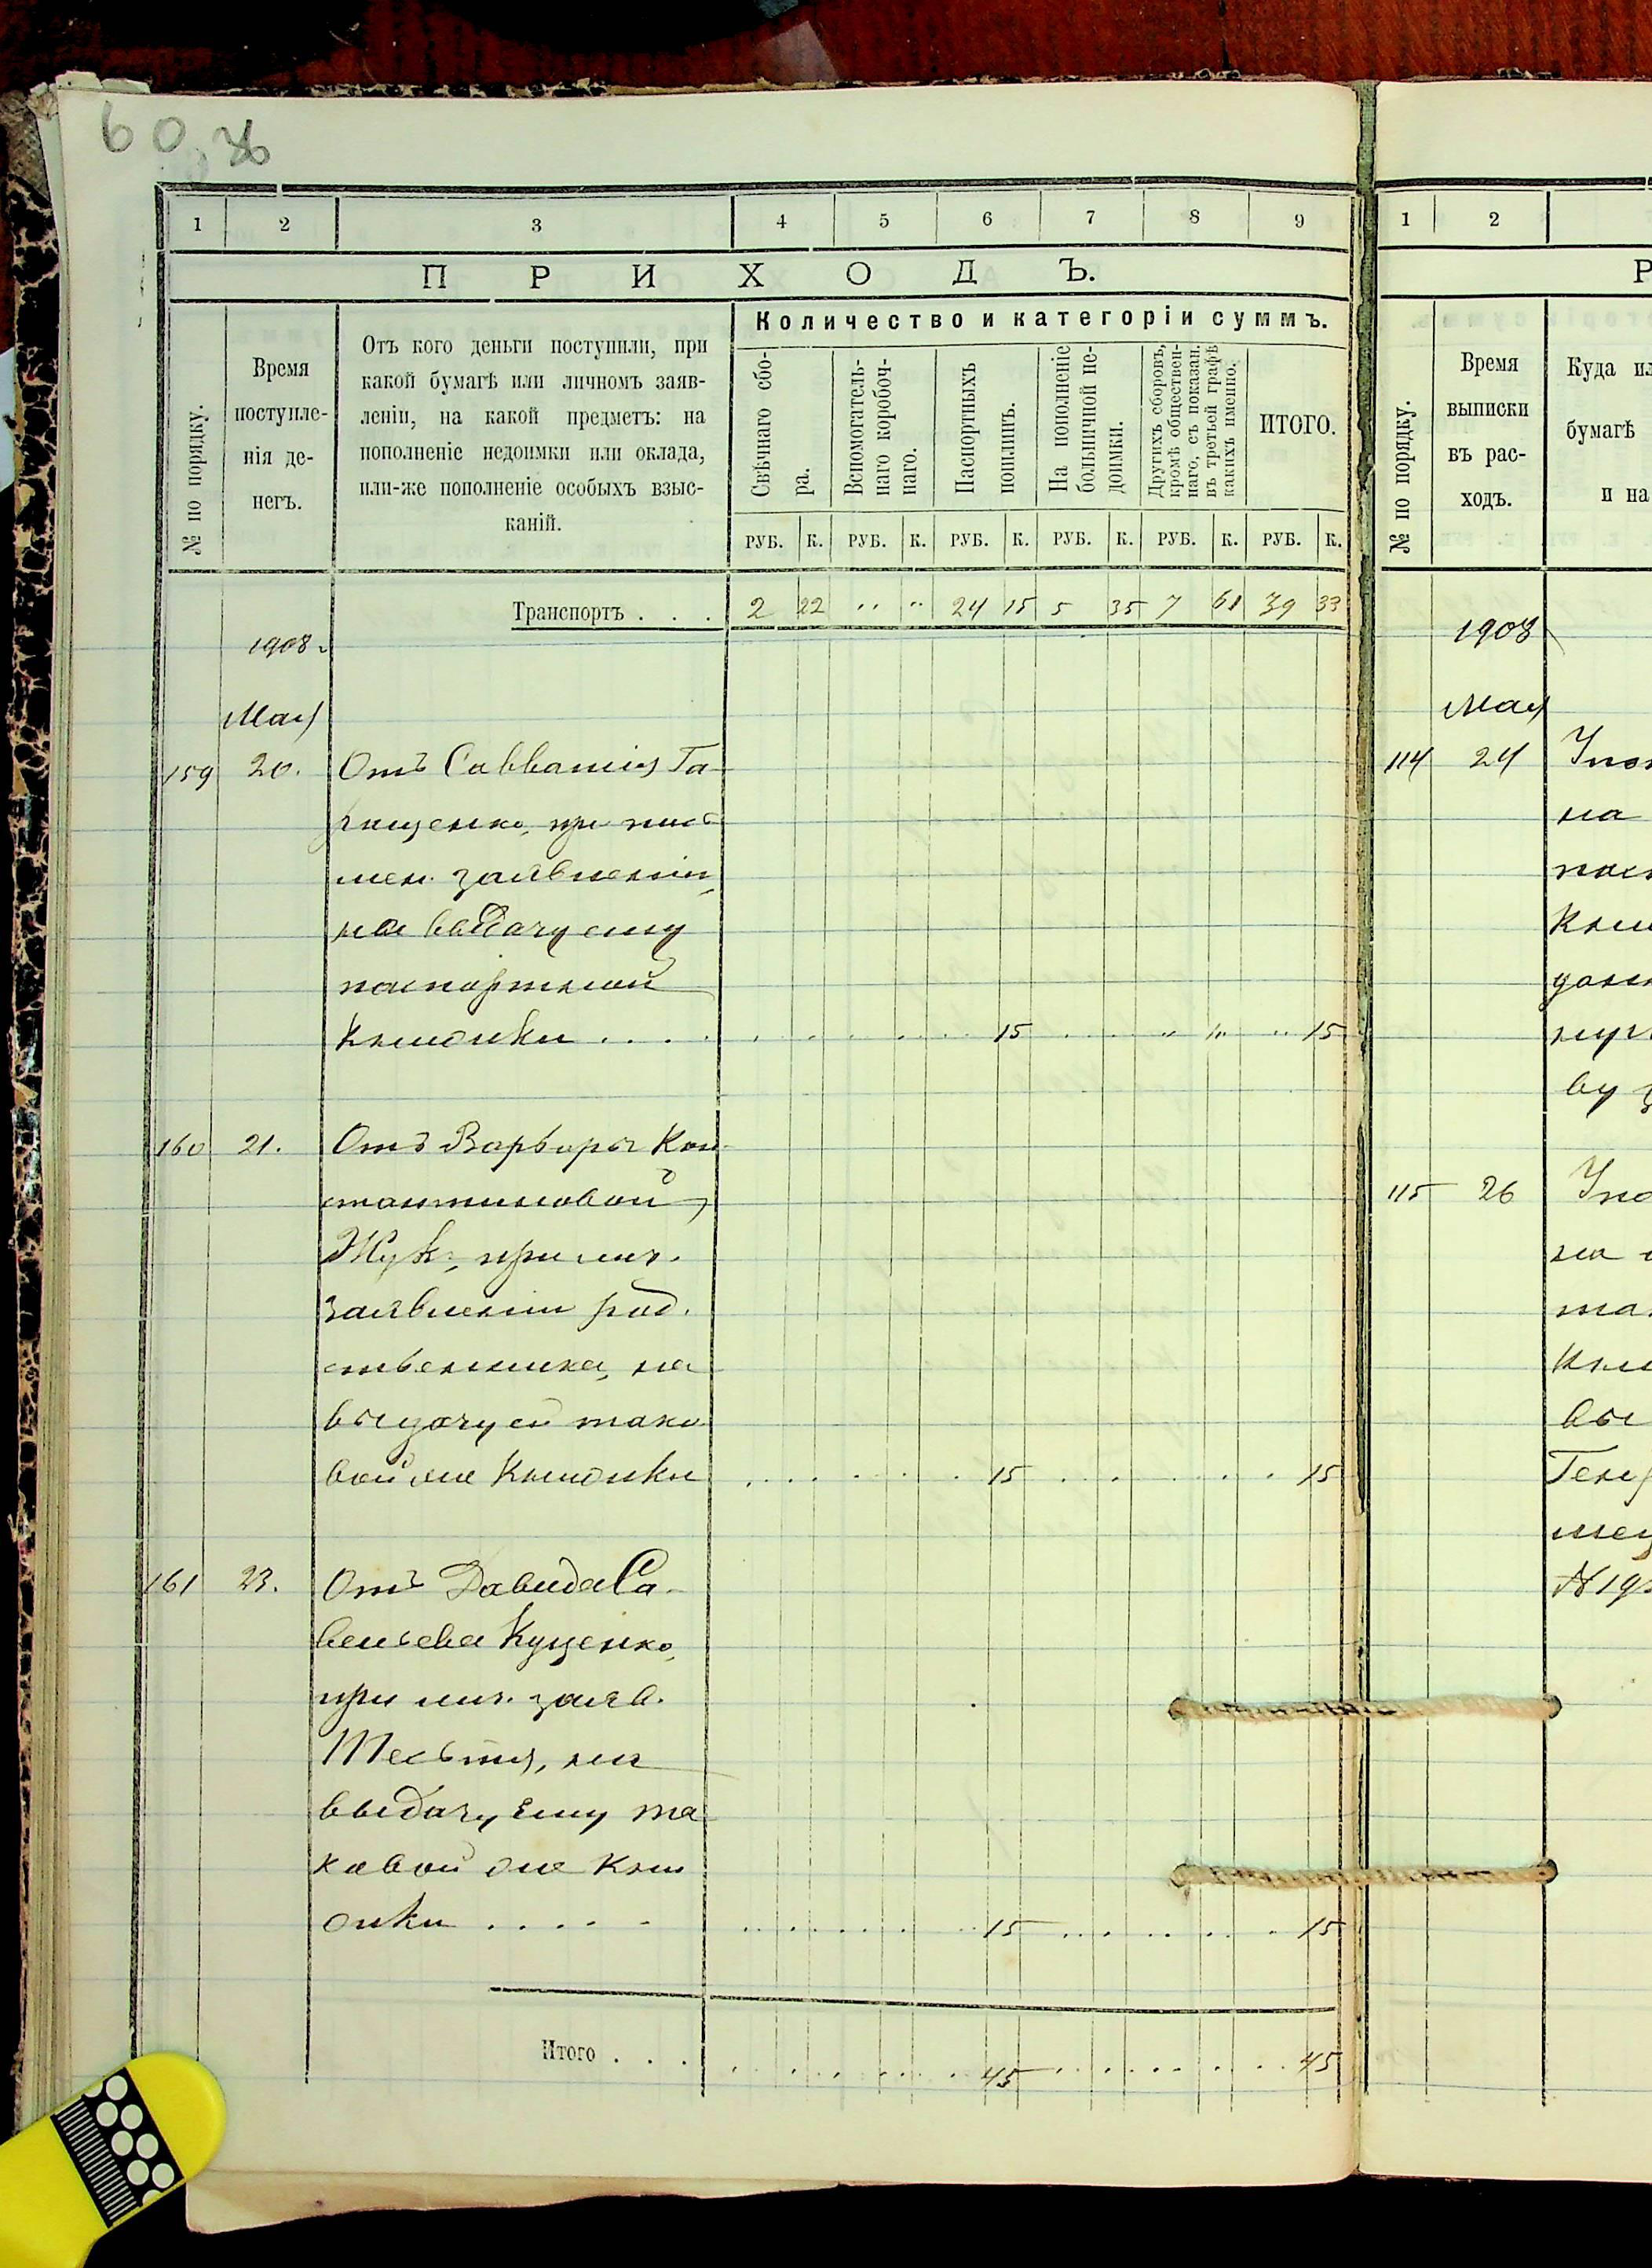 60
1 2 3 4 5 6 7 8 9
ПРИХОДЪ.
№ по порядку.
Время
поступле-
нія де-
негъ.
Отъ кого деньги поступили, при
какой бумагѣ или личномъ заяв-
леніи, на какой предметъ: на
пополненіе недоимки или оклада,
или-же пополненіе особыхъ взыс-
каній.
Количество и категоріи суммъ.
Свѣчнаго сбо-
ра.
Вспомогатель-
наго коробоч-
наго.
Паспортныхъ
пошлинъ.
На пополненіе
больничной не-
доимки.
Другихъ сборовъ,
кромѣ обществен-
наго, съ показан.
въ третьей графѣ
какихъ именно.
ИТОГО.
РУБ. К. РУБ. К. РУБ. К. РУБ. К. РУБ. К. РУБ. К.
Транспортъ . . . 2 22 " " 24 15 5 35 7 61 39 33
1908
Мая
159 20. Отъ Савватія Та
ращенко, при пись
мен. заявленіи,
на выдачу ему
паспортной
книжки . . . . 15 " " 15
160 21. Отъ Варвары Кон
стантиновой
Жукъ, при лич.
заявленіи род.
ственника, на
выдачу ей тако
вой же книжки 15 15
161 23. Отъ Давида Са
вельева Куценко,
при лич. заяв.
выдачу ему та
ковой же книж
жки . . . . . 15 15
Итого . . . 45 45
1 2
Р
№ по порядку.
Время
выписки
въ рас-
ходъ.
Куда
бумагѣ
и на
1908
Мая
114 24
на
115 26
на
вы